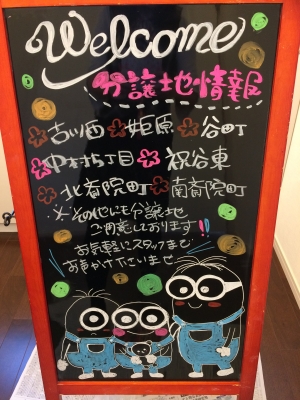 Welcome
分譲地情報
古川西 姫原 谷町
中村5丁目 祝谷東
北斎院町 南斎院町
※その他にも分譲地
ご用意しております!!
お気軽にスタッフまで
お声かけ下さいませ